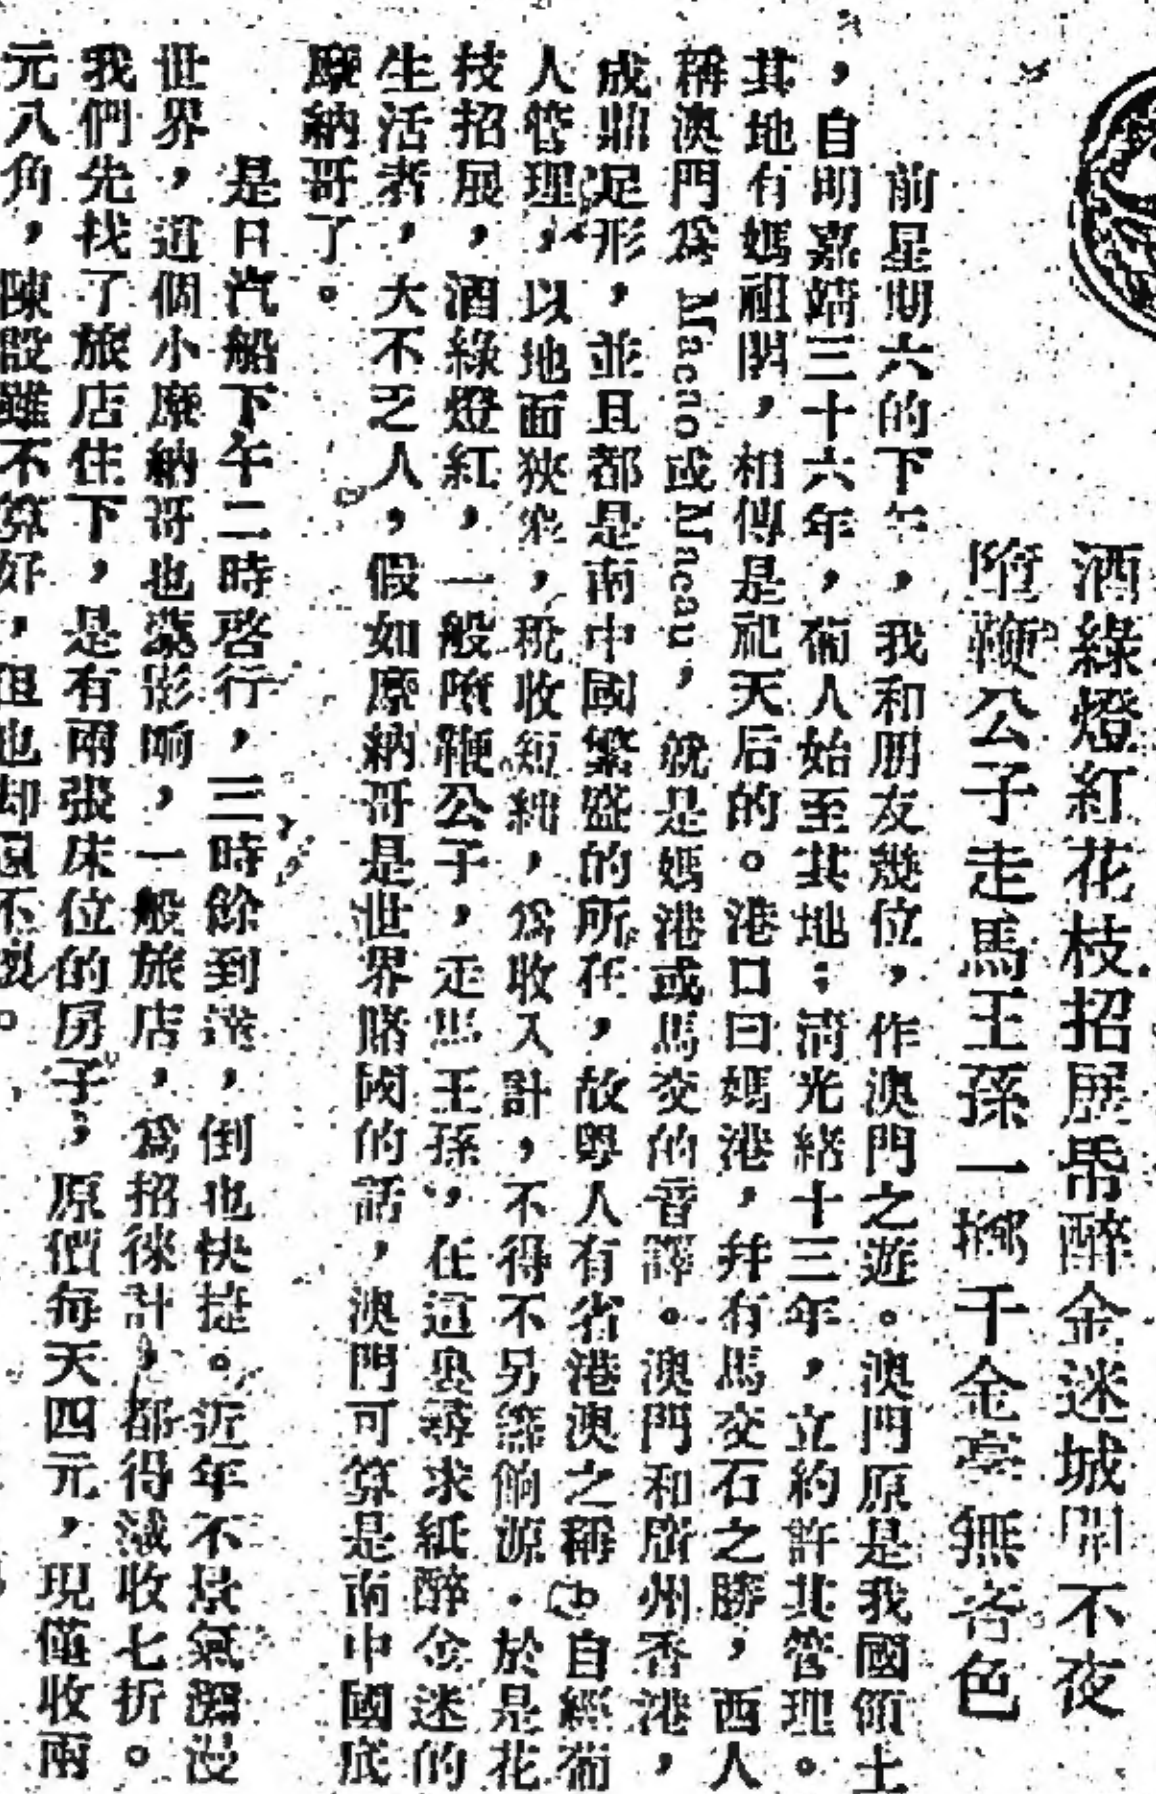 酒綠燈紅花枝招展帋醉金迷城開不夜
墮鞭公子走馬王孫一擲千金毫無吝色
前星期六的下午，我和朋友幾位，作澳門之遊。澳門原是我國領土
，自明嘉靖三十六年，葡人始至其地；清光緒十三年，立約許其管理。
其地有媽祖閣，相傳是祀天后的。港口曰媽港，幷有馬交石之勝，西人
稱澳門爲Macao或Macau，就是媽港或馬交的音譯。澳門和廣州香港，
成鼎足形，並且都是南中國繁盛的所在，故粤人有省港澳之稱。自經葡
人管理，以地面狹窄，稅收短絀，爲收入計，不得不另闢餉源．於是花
枝招展，酒綠燈紅，一般墮鞭公子，走馬王孫，在這裏尋求紙醉金迷的
生活者，大不乏人，假如摩納哥是世界賭國的話，澳門可算是南中國底
摩納哥了。
是日汽船下午二時啓行，三時餘到達，倒也快捷。近年不景氣瀰漫
世界，這個小摩納哥也蒙影响，一般旅店，爲招徠計，都得減收七折。
我們先找了旅店住下，是有兩張床位的房子，原價每天四元，現僅收兩
元八角，陳設雖不算好，但也却還不劣。